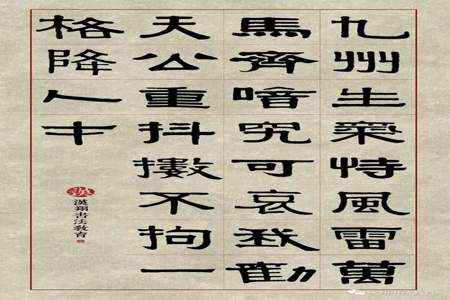 九州生氣恃風雷萬
馬齊喑究可哀我勸
天公重抖擻不拘一
格降人才
漢
漢翔書法教育